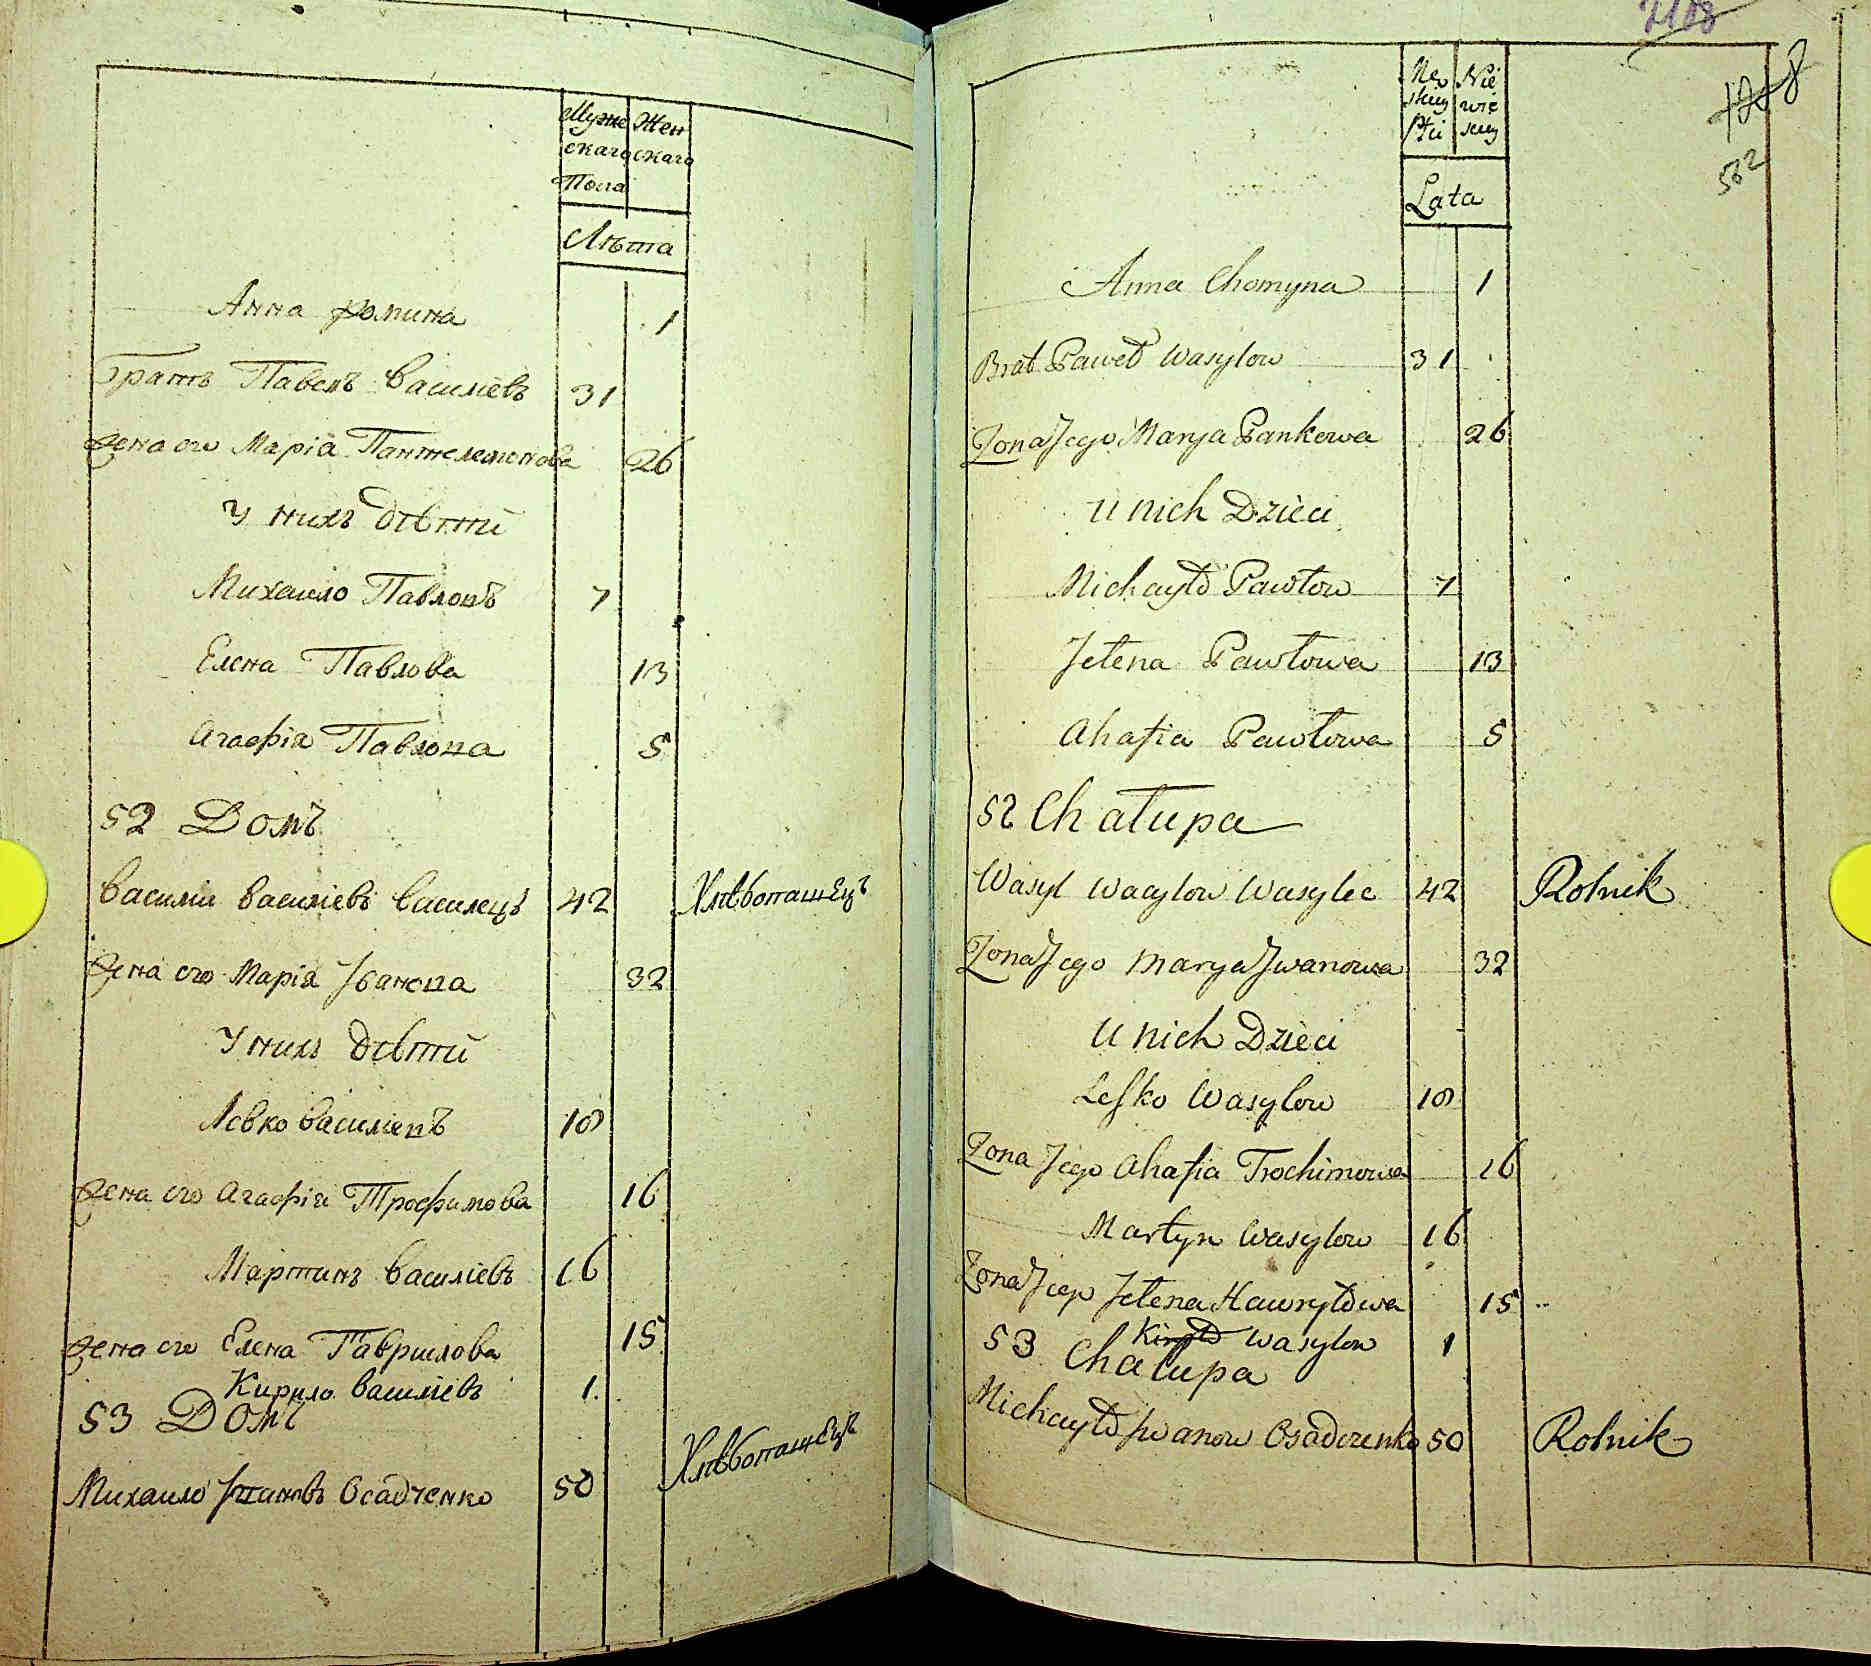 Муже Жен
скаго скаго
Пола
Лѣта
Анна Фомина 1
Братъ Павелъ Василіевъ 31
Жена его Марія Пантелемонова 26
У нихъ дѣтти
Михаило Павловъ 7
Елена Павлова 13
Агафія Павлова 5
52 Домъ
Василій Василіевъ Василецъ 42 Хлѣбопашецъ
Жена его Марія Іванова 32
У нихъ дѣтти
Левко Василіевъ 18
Жена его Агафія Трофимова 16
Мартинъ Василіевъ 16
Жена его Елена Гаврилова 15
Кирило Василіевъ 1
53 Домъ
Михаило Івановъ Осадченко 50 Хлѣбопашецъ
8
582
Męż Nie
skiey wie
Płci skiey
Lata
Anna Chomyna 1
Brat Paweł Wasylow 31
Żona Jego Marya Pankowa 26
U nich Dzieci
Michayło Pawłow 7
Jełena Pawłowa 13
Ahafia Pawłowa 5
52 Chałupa
Wasyl Wasylow Wasylec 42 Rolnik
Żona Jego Marya Jwanowa 32
U nich Dzieci
Lefko Wasylow 18
Żona Jego Ahafia Trochimowa 16
Martyn Wasylow 16
Żona Jego Jełena Hawryłowa 15
Kiryło Wasylow 1
53 Chałupa
Michayło Jwanow Osadczenko 50 Rolnik